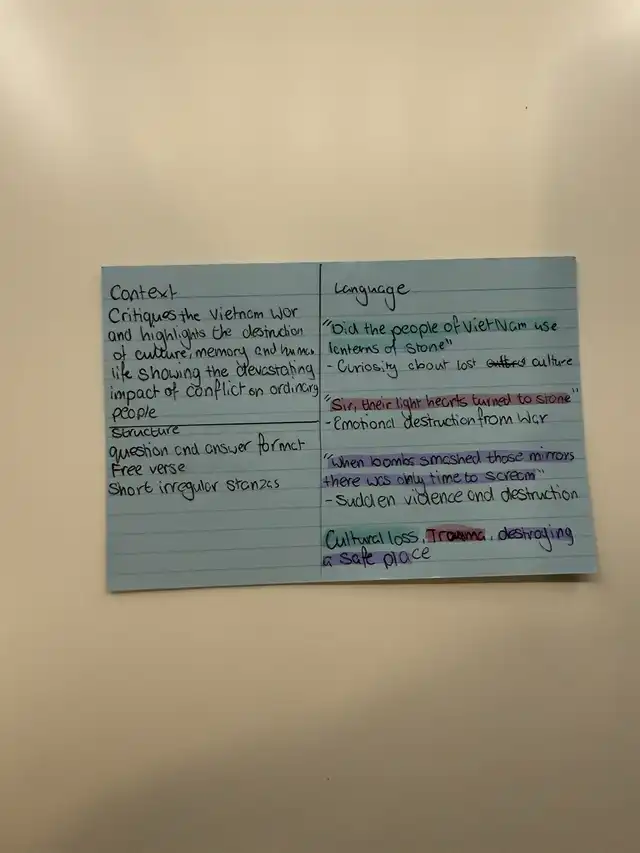 Context
Critiques the Vietnam War
and highlights the destruction
of culture, memory and human
life showing the devastating
impact of conflict on ordinary
people
Structure
question and answer format
Free verse
Short irregular stanzas
Language
"Did the people of Viet Nam use
lanterns of stone"
- Curiosity about lost culture
"Sir, their light hearts turned to stone"
- Emotional destruction from war
"When bombs smashed those mirrors
there was only time to scream"
- Sudden violence and destruction
Cultural loss, Trauma, destroying
a safe place